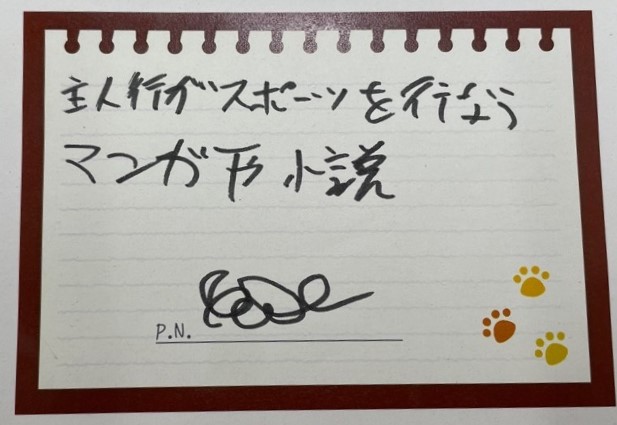 主人行がスポーツを行なう
マンガ 小説
P.N.